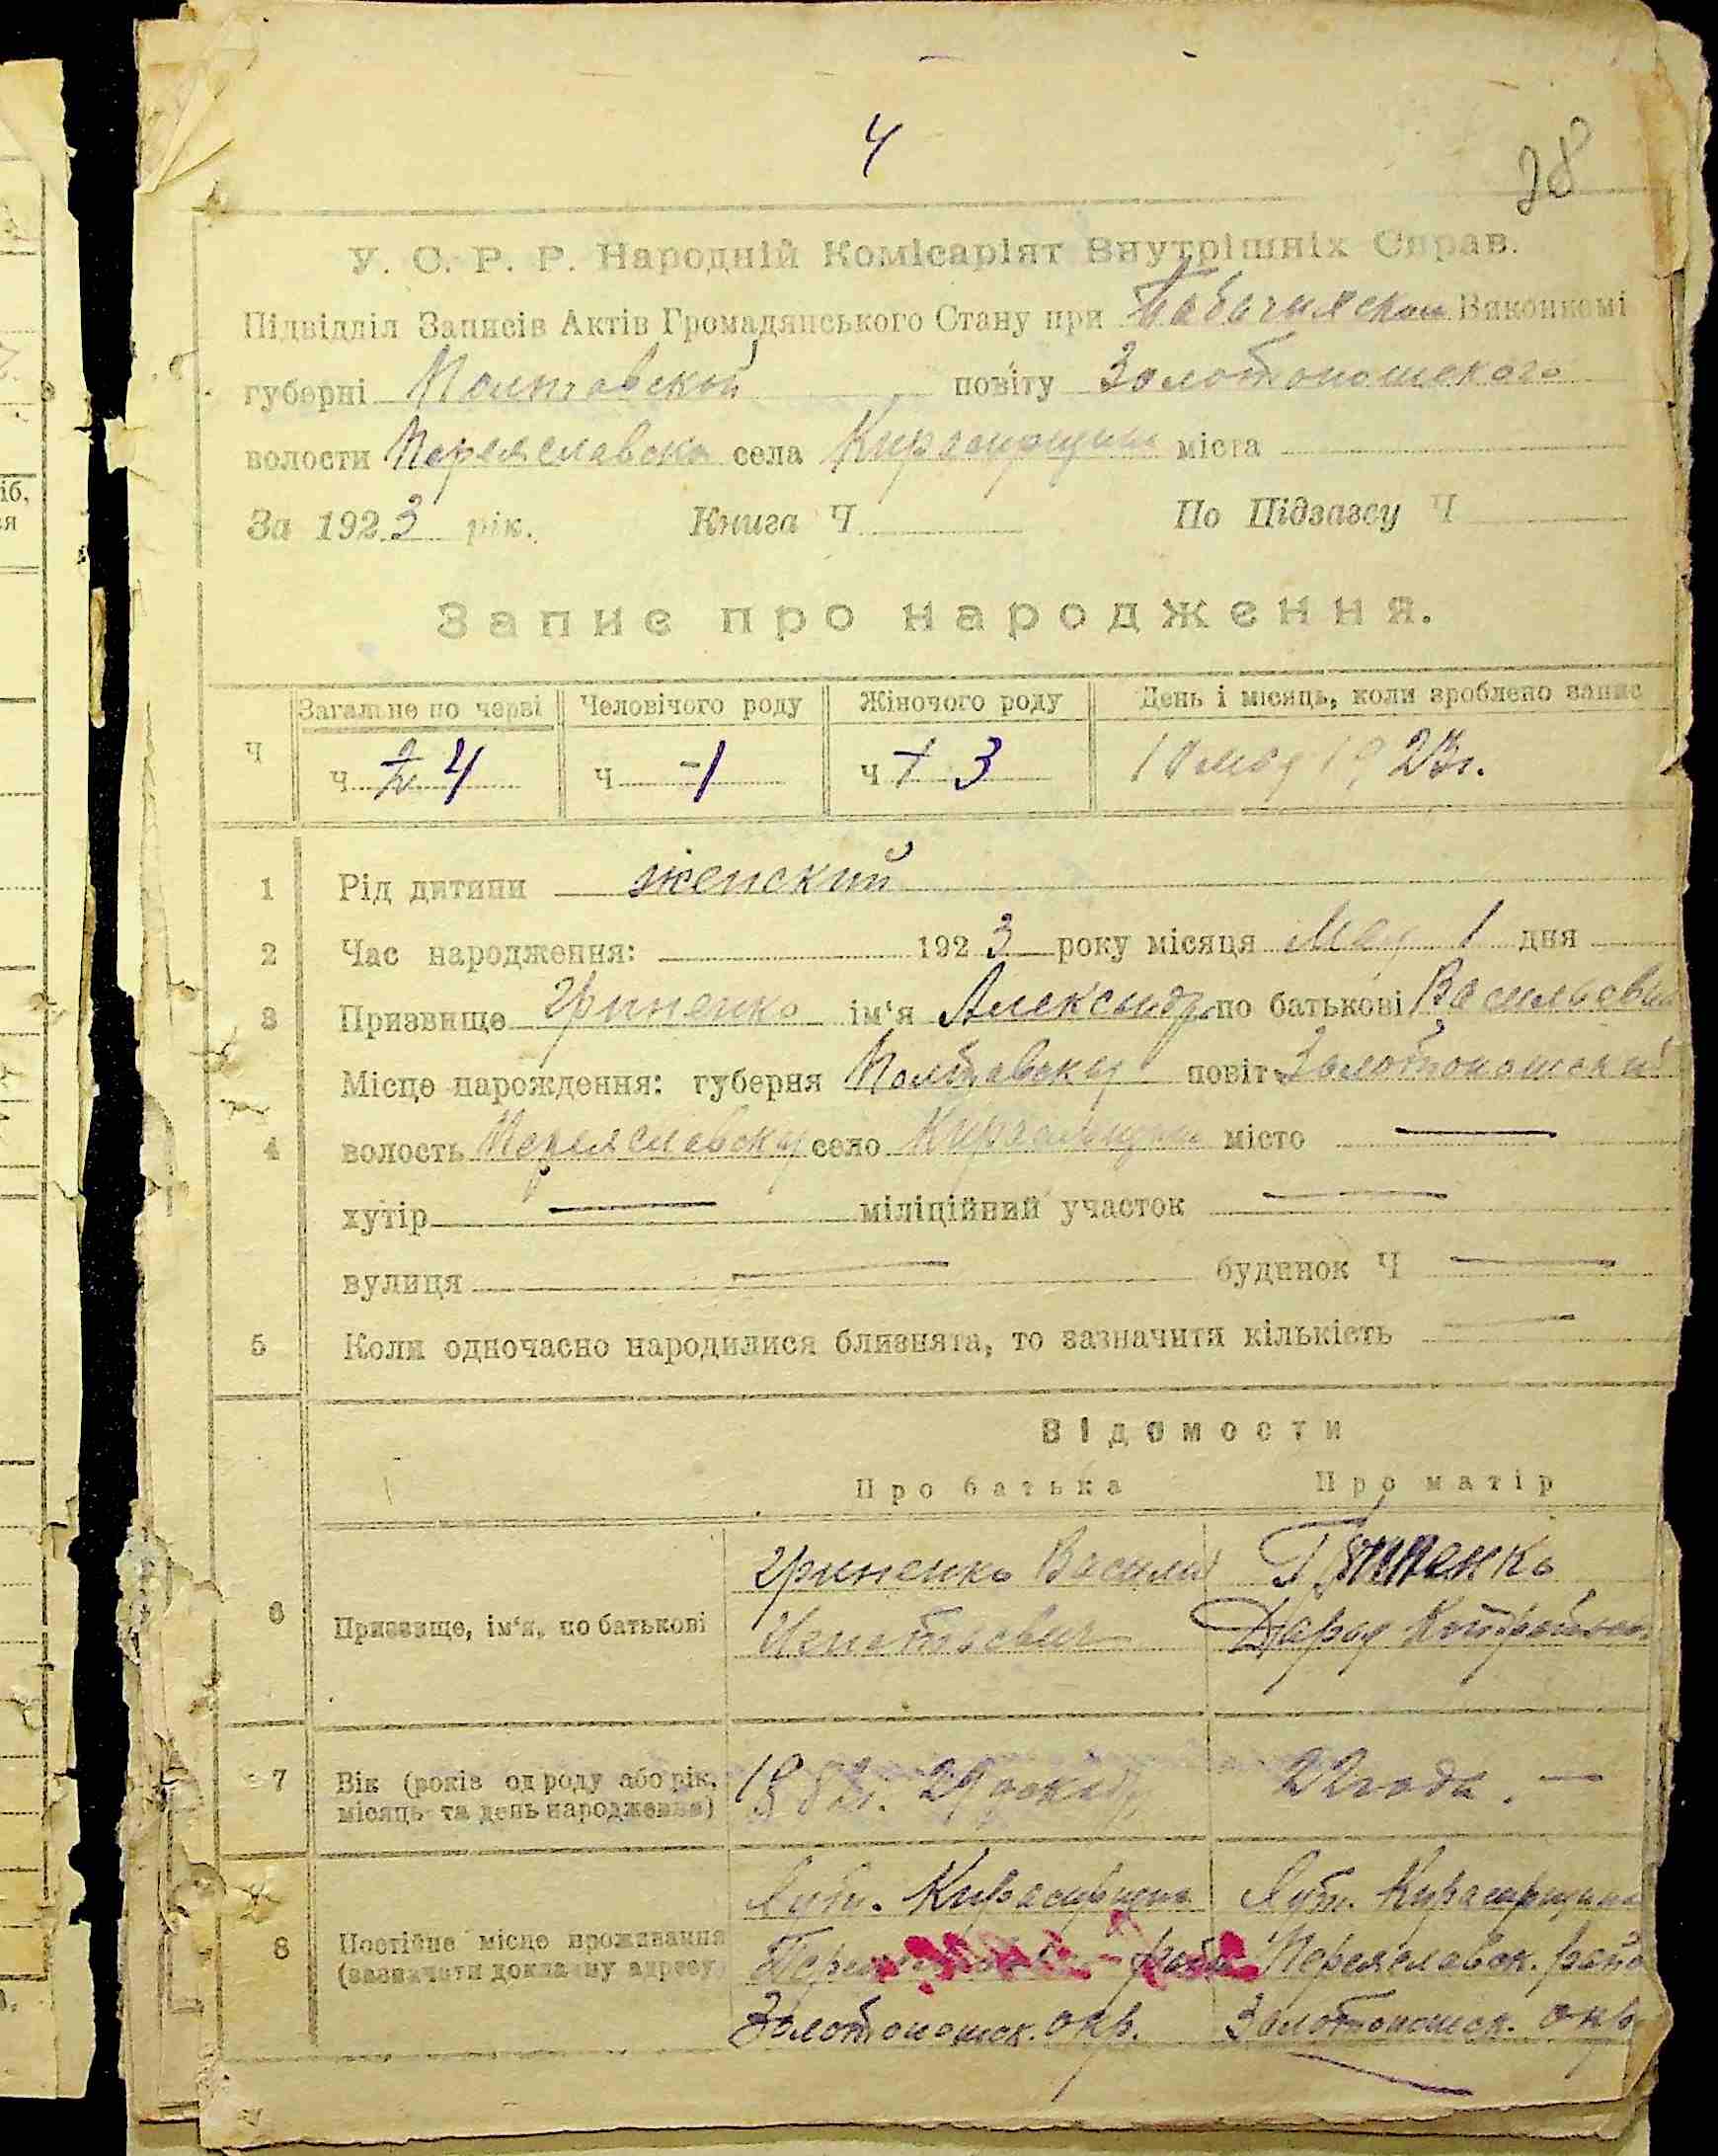 4
28
У. С. Р. Р. Народній Комісаріят Внутрішніх Справ.
Підвідділ Записів Актів Громадянського Стану при Виконкомі
губерні Полтавской повіту Золотоношского
волости Переяславско села міста
За 1923 рік. Книга Ч По Підзагсу Ч
Запис про народження.
Ч Загальне по черві Человічого роду Жіночого роду День і місяць, коли зроблено запис
ч 4 ч -1 ч 3 10 мая 1923г.
1 Рід дитини женский
2 Час народження: 1923 року місяця Мая 1 дня
3 Призвище Гриненко ім'я Александр по батькові
Місце народження: губерня Полтавская повіт Золотоношский
4 волость Переяславская село місто —
хутір — міліційний участок —
вулиця — будинок Ч —
5 Коли одночасно народилися близнята, то зазначити кількість —
Відомости
Про батька Про матір
6 Призвище, ім'я, по батькові Гриненко Василий Гриненко
Дарья
7 Вік (років од роду або рік, місяць та день народження) 22 года. —
8 Постійне місце проживання (зазначити докладну адресу) Хут. Кирасирщина Хут. Кирасирщина
Переяславск. район
Золотоношск. окр. Золотоношск. окр.